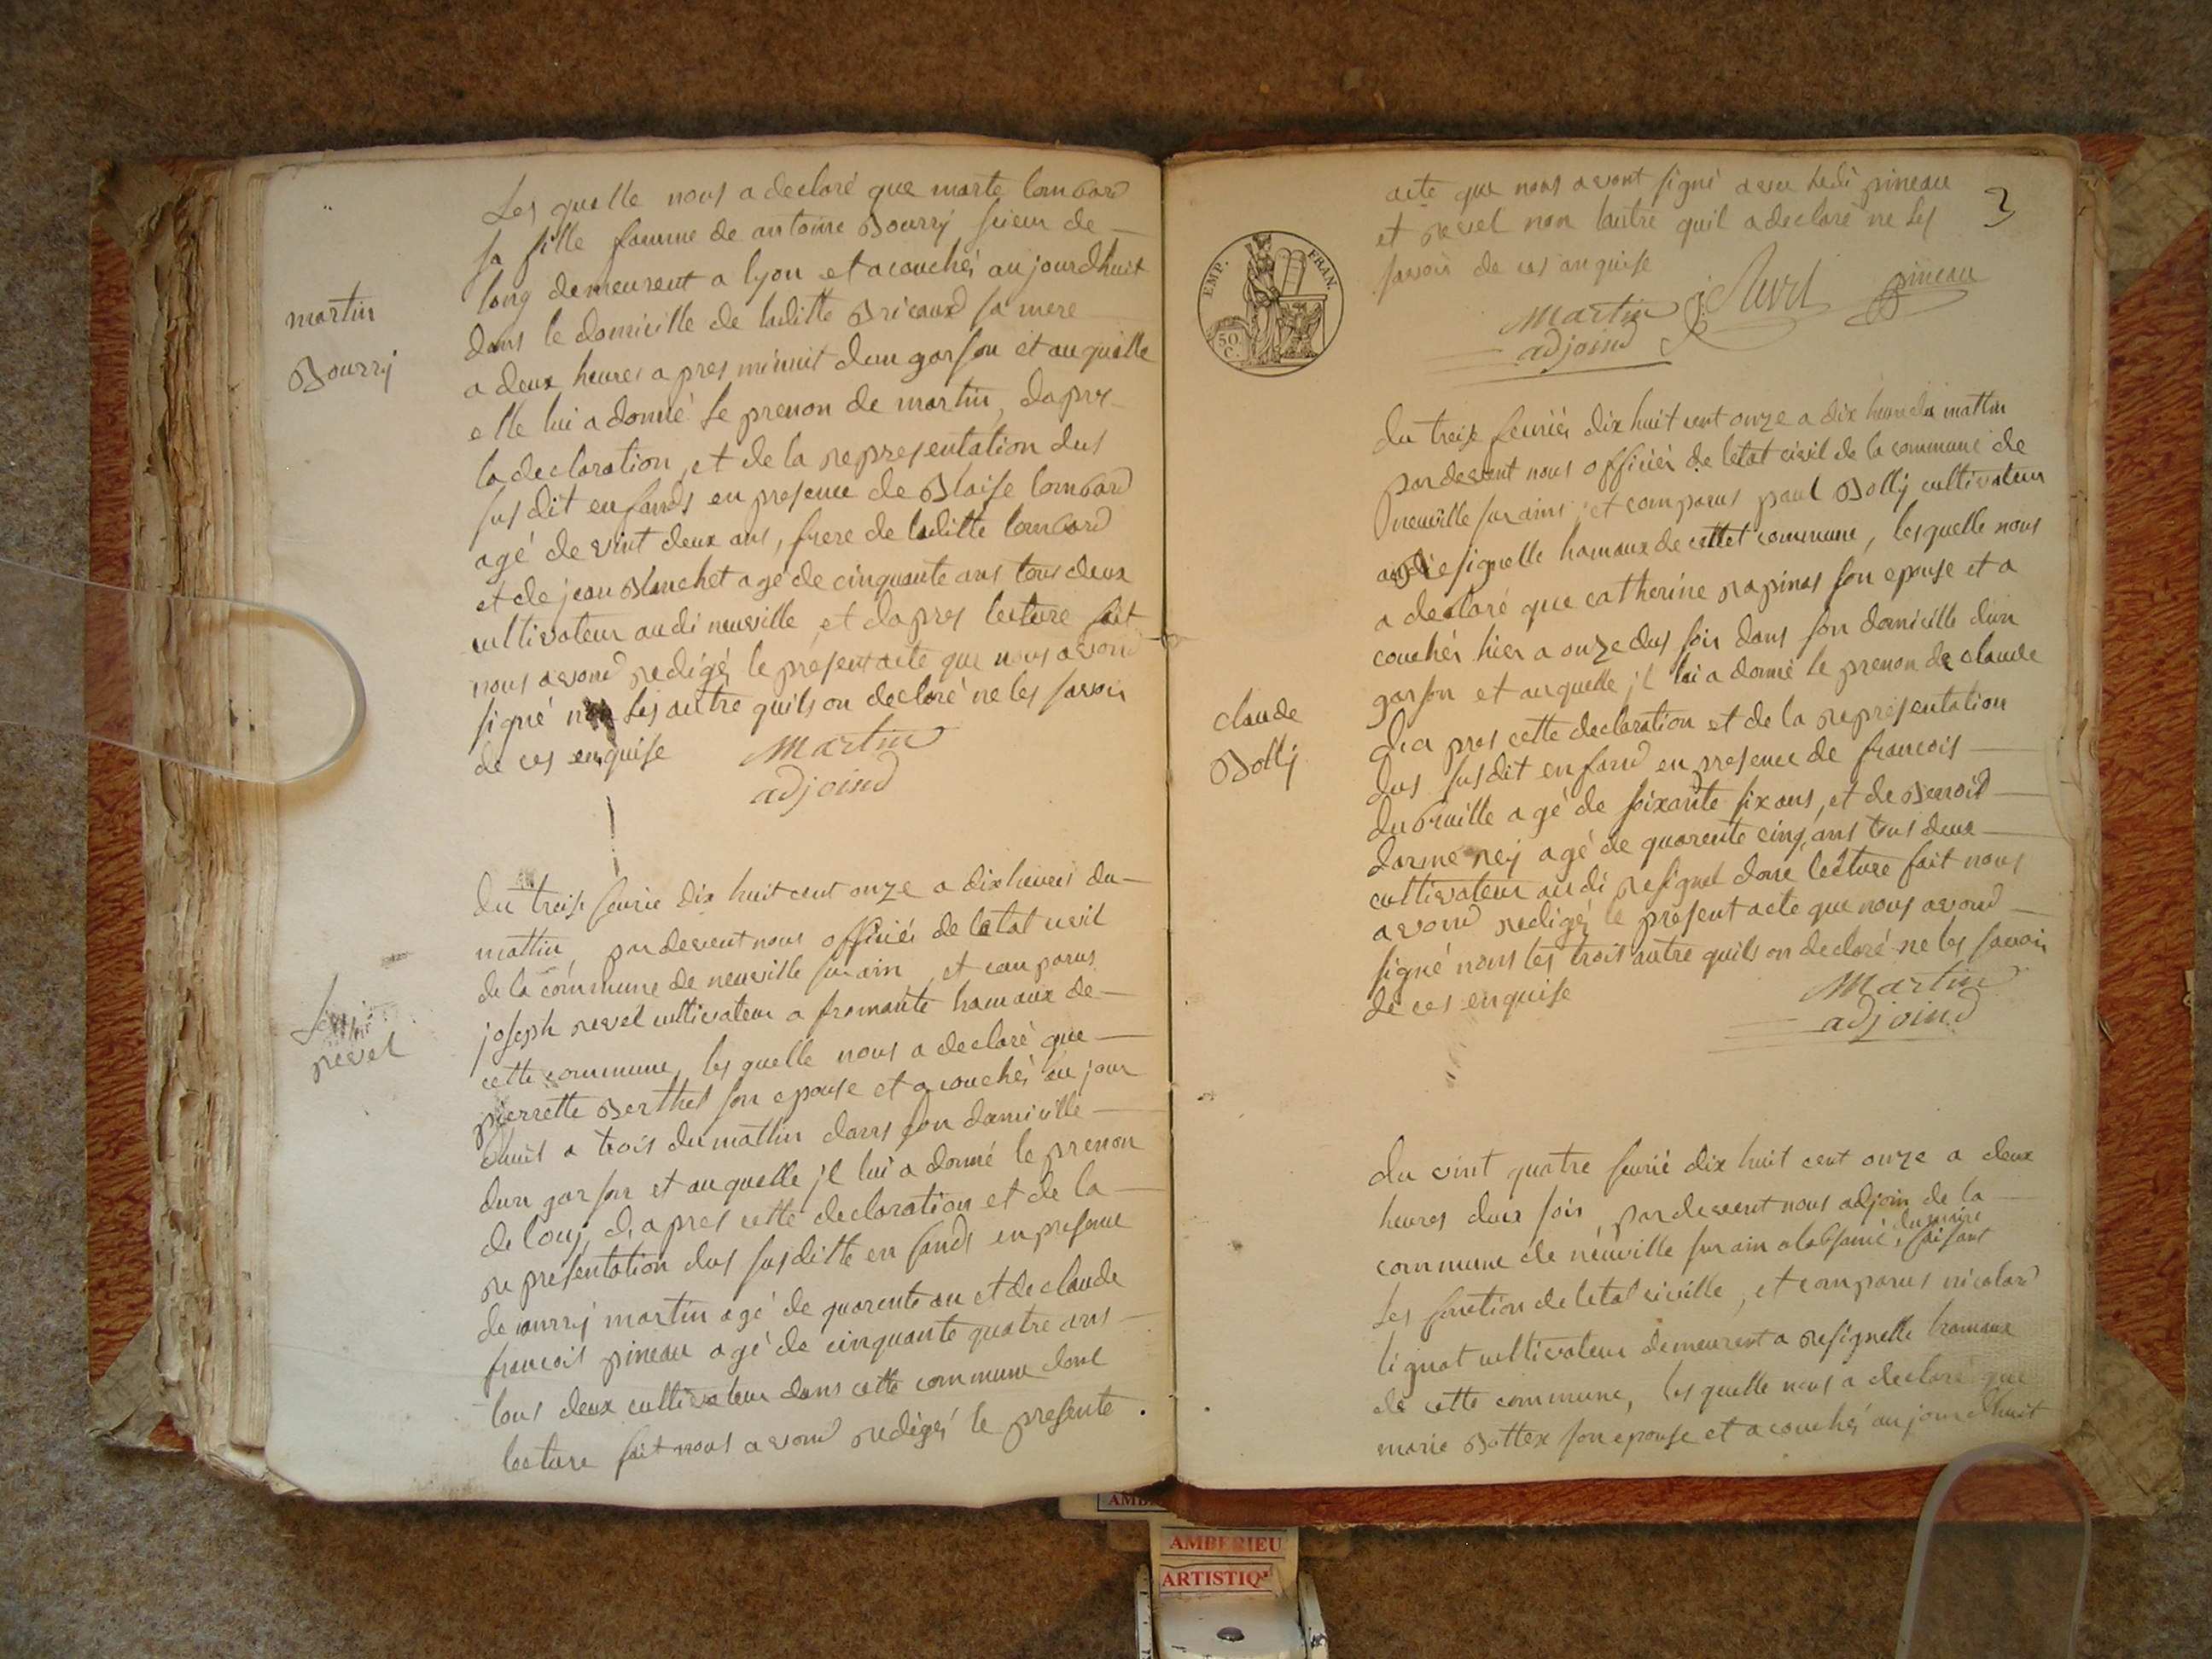 Les quelle nous a declaré que marte lombard
sa fille famme de antoine Bourrÿ sieur de
long demeurent a lyon et acouchés aujourdhuit
dans le domicille de laditte Bricaud sa mere
a deux heures apres minuit dun garson et auquelle
elle lui a donné le prenon de martin, dapres
la declaration, et de la representation dus
susdit enfands en presence de Blaise lombard
agé de vint deux ans, frere de laditte lombard
et de jean Blanchet agé de cinquante ans tous deux
cultivateur audi neuville, et dapres lecture fait
nous avond redigés le présent acte que nous avond
signé non Les autre quils on declaré ne les savoir
de ces enquise
Martin
adjoind
martin
Bourrÿ
du treise fevrie dix huit cent onze a dix heures du
mattin, pardevent nous officiés de letat civil
de la commune de neuville sur ain, et comparus
joseph revel cultivateur a fromante hamaux de
cette commune, les quelle nous a declaré que
pierrette Berthet son epouse et acouchés au jour
dhuit a trois du mattin dans son damicille
dun garson et auquelle jl lui a donné le prenon
de louj, d,apres cette declaration et de la
representation dus susditte enfands en presence
de martin agé de quarente an et de claude
francois pineau agé de cinquante quatre ans
tous deux cultivateur dans cette commune dont
lecture fait nous avond redigés le presente
revel
acte que nous avont signé avec ledi pineau
et revel non lautre quil a declaré ne les
savoir de ces anquise
Martin
adjoind
J. Revel
pineau
3
EMP. FRAN.
50 C.
du treise fevriés dix huit cent onze a dix heure du mattin
pardevent nous officiés de letat civil de la commune de
neuville sur ains, et comparus paul Bollÿ cultivateur
a resignelle hamaux de cettet commune, lesquelle nous
a declaré que catherine rapinas son epouse et a
couchés hier a onze dus soir dans son damicille dun
garson et auquelle jl lui a donné le prenon de claude
d,apres cette declaration et de la representation
dus susdit enfand en presence de francois
dubruille agé de soixante six ans, et de Benroid
darme reÿ agé de quarente cinq ans tous deux
cultivateur audi resignel dont lecture fait nous
avond redigés le présent acte que nous avond
signé nons les trois autre quils on declaré ne les savoir
de ces enquise
Martin
adjoind
claude
Bollÿ
du vint quatre fevrié dix huit cent onze a deux
heures dus soir, pardevent nous adjoin de la
commune de néuville sur ain alabsance, du maire faisant
Les fonction de letat civille, et comparus nicolard
tignat cultivateur demeurent a resignelle hamaux
de cette commune, lesquelle nous a declaré que
marie Bottex son epouse et acouchés aujourdhuit
AMBERIEU
ARTISTIQ